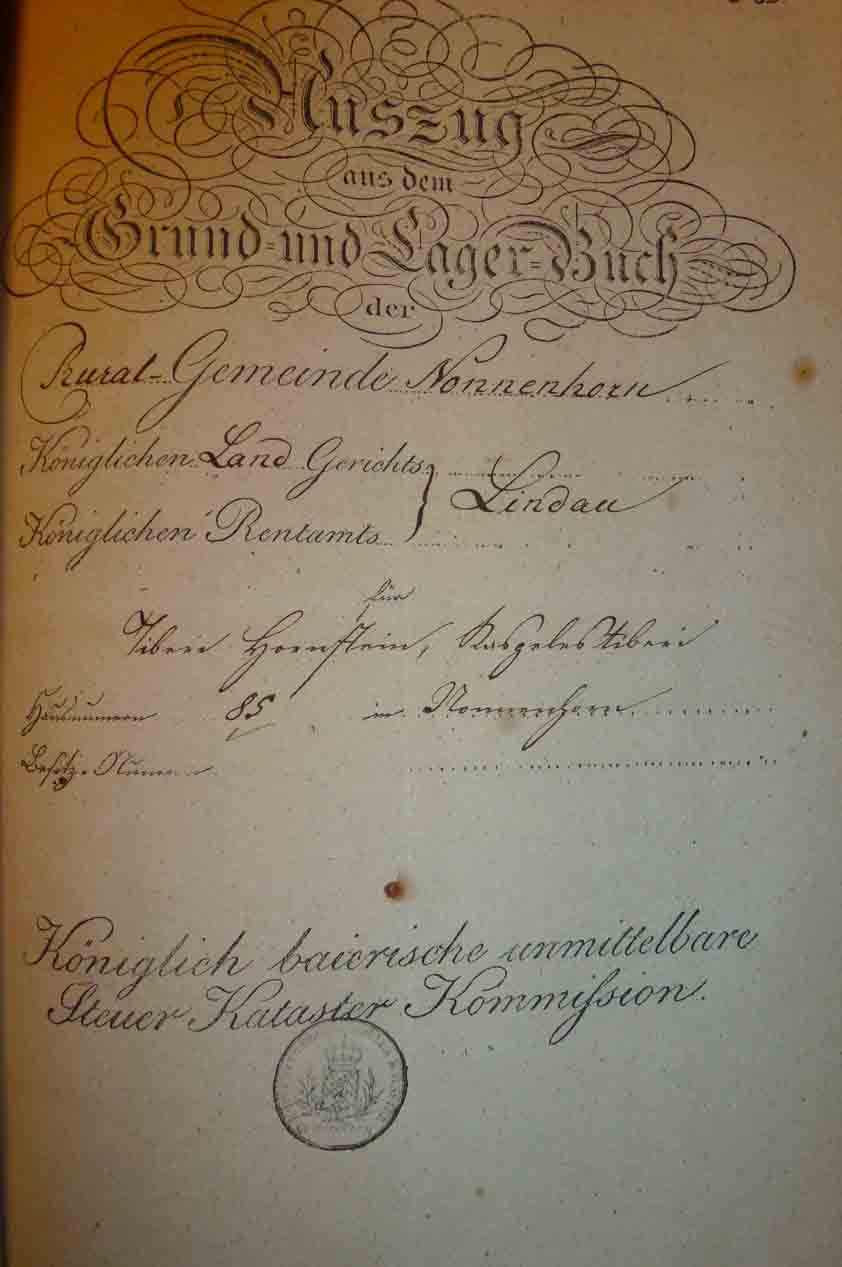 Auszug
aus dem
Grund= und Lager=Buch
der
Rural-Gemeinde Nonnenhorn
Königlichen Land Gerichts
Lindau
Königlichen Rentamts
für
Tiberi Hornstein, Kaspeles Tiberi
Hausnumern 85 in Nonnenhorn
Besitz-Numern
Königlich baierische unmittelbare
Steuer Kataster Kommißion.